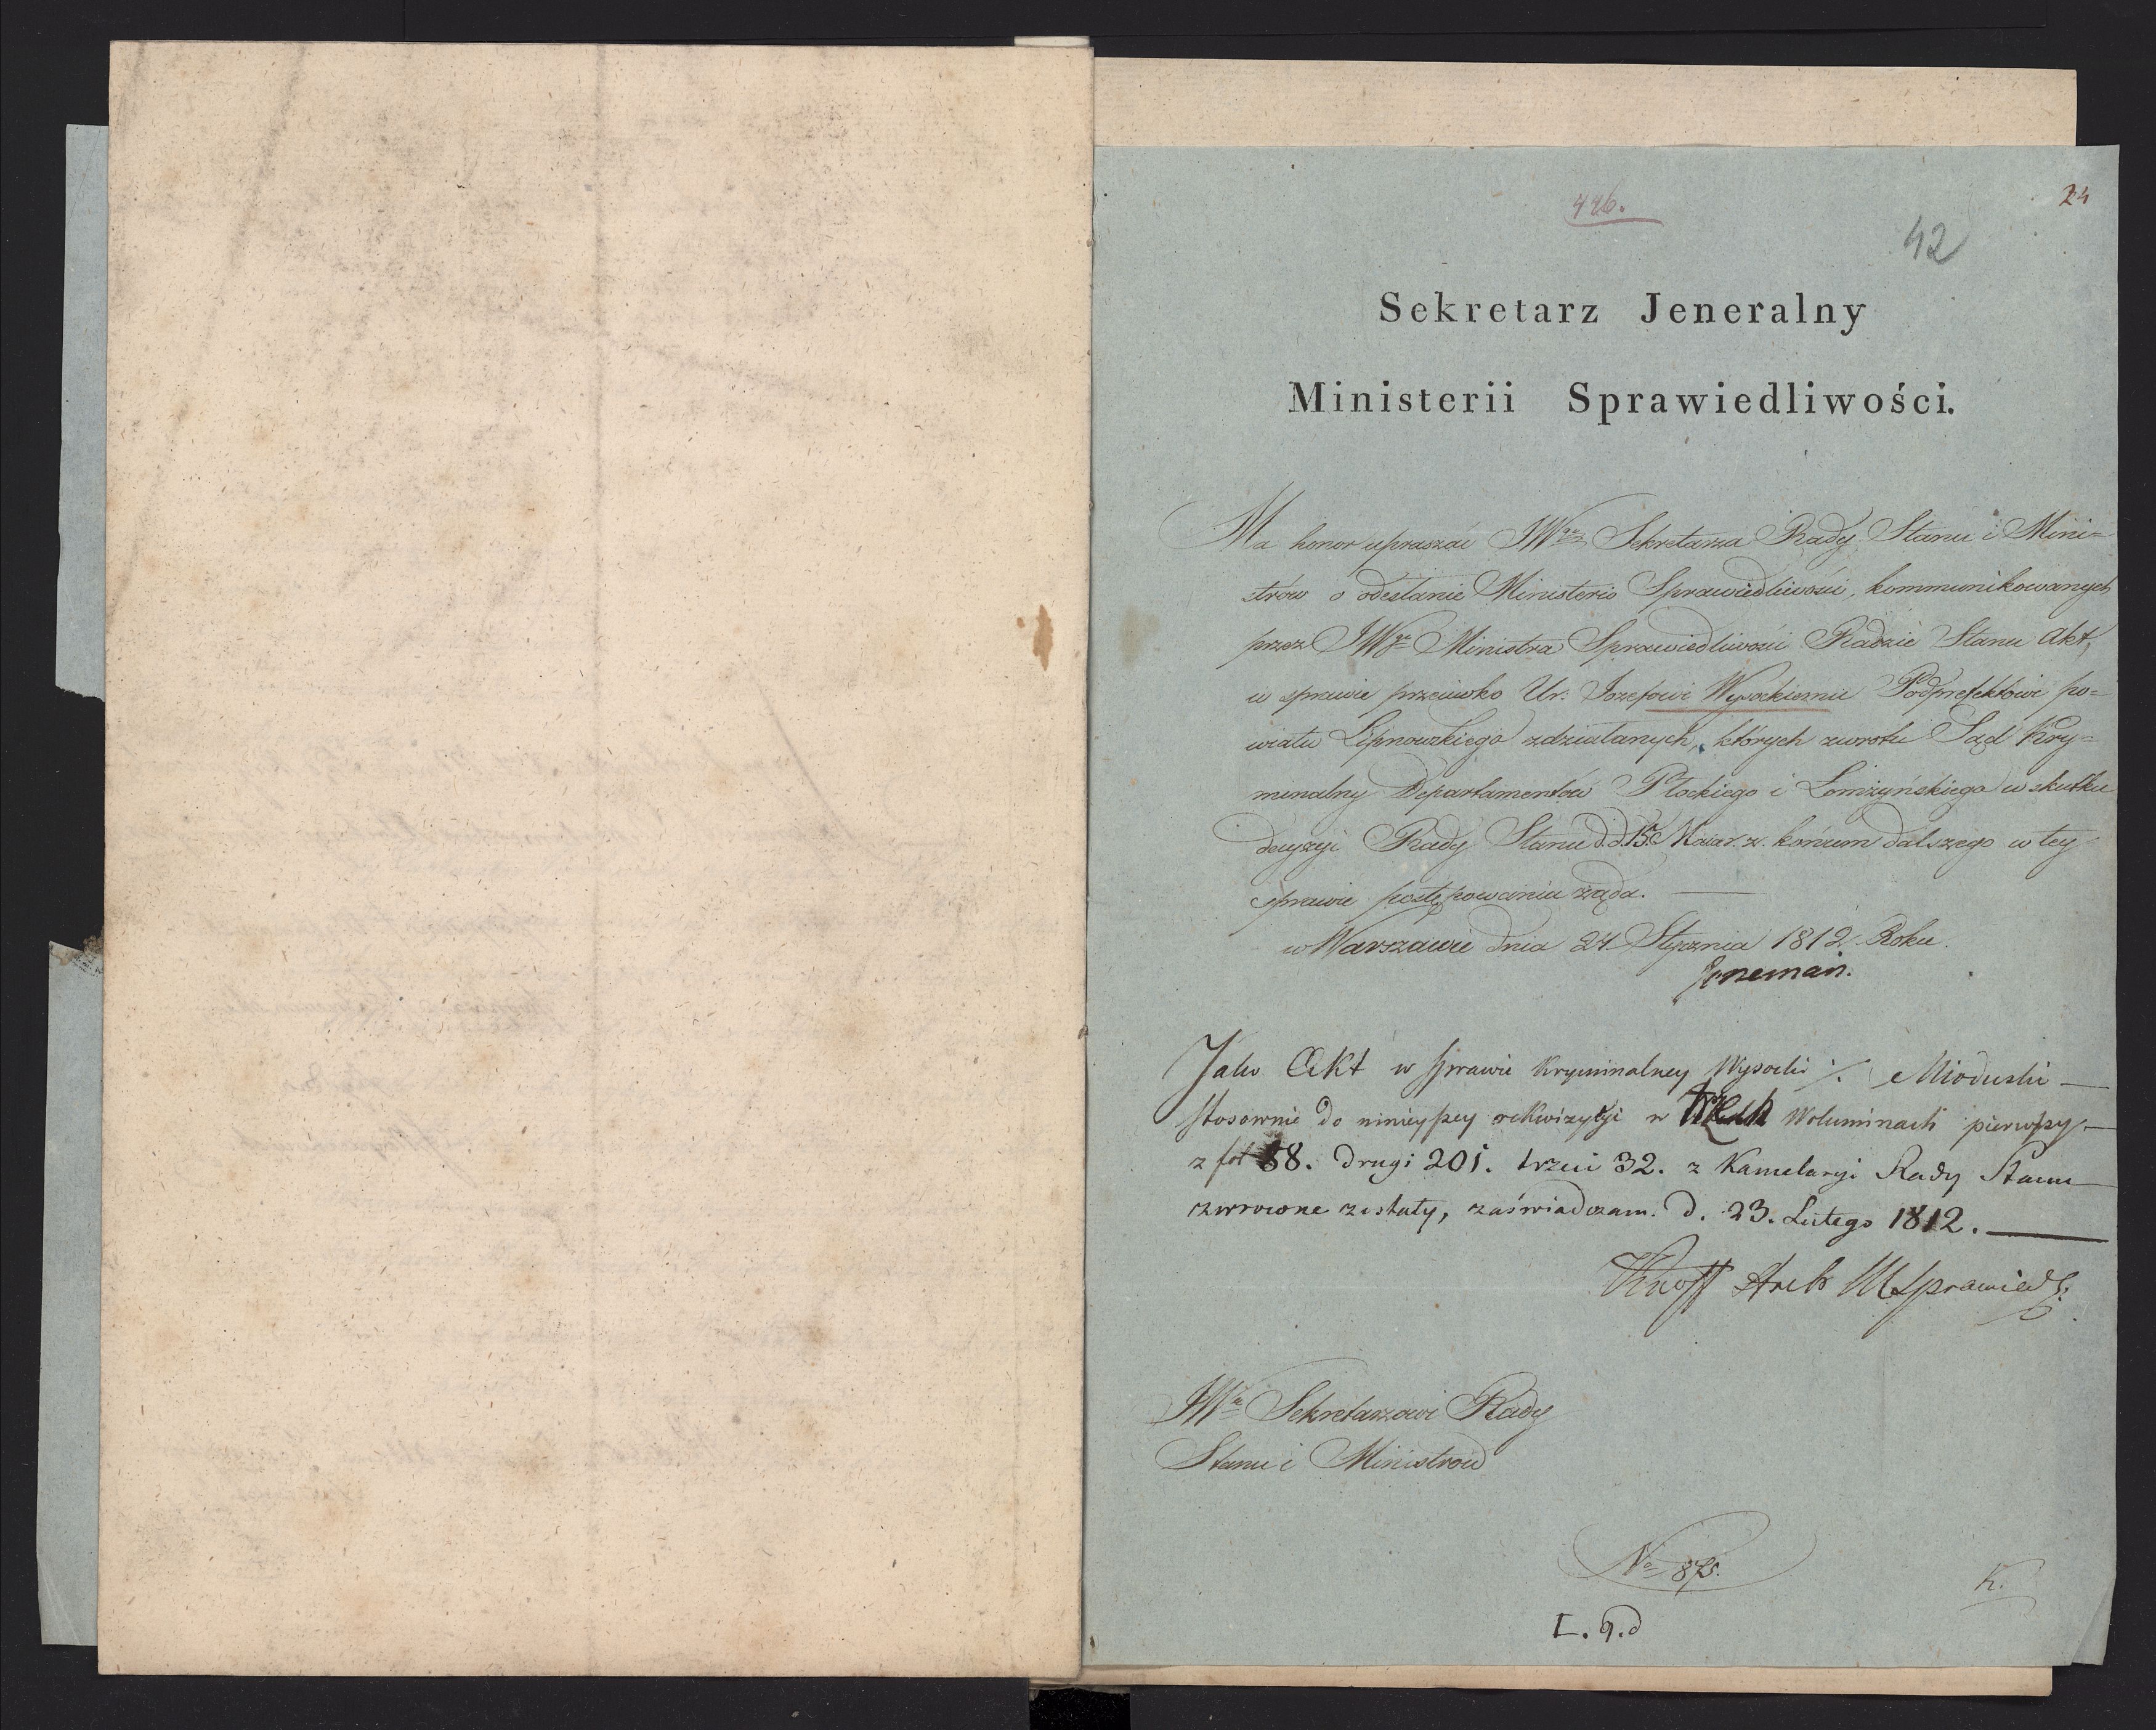 446.
24
42
Sekretarz Jeneralny
Ministerii Sprawiedliwości.
Ma honor upraszać JWgo Sekretarza Rady Stanu i Mini=
strów o odesłanie Ministerio Sprawiedliwości, kommunikowanych
przez JWgo Ministra Sprawiedliwości Radzie Stanu Akt,
w sprawie przeciwko Ur: Jozefowi Wysockiemu Podprefektowi po=
wiatu Lipnowskiego zdziałanych, których zwrotu Sąd Kry=
minalny Departamentów Płockiego i Łomżyńskiego w skutku
decyzyi Rady Stanu d.d. 15. Maia r. z. końcem dalszego w tey
sprawie postępowania żąda.
w Warszawie dnia 24 Stycznia 1812 Roku.
Jako Akt w sprawie kryminalney Wysocki ./. Mioduski
stosownie do ninieyszey rekwizycyi w trzech woluminach pierwszy
z fol 88. drugi 201. trzeci 32. z Kancelaryi Rady Stanu
zwrocone zostały, zaświadczam. d. 23. Lutego 1812.
Knoff M Sprawied:
JWmu Sekretarzowi Rady
Stanu i Ministrów
No 875.
K.